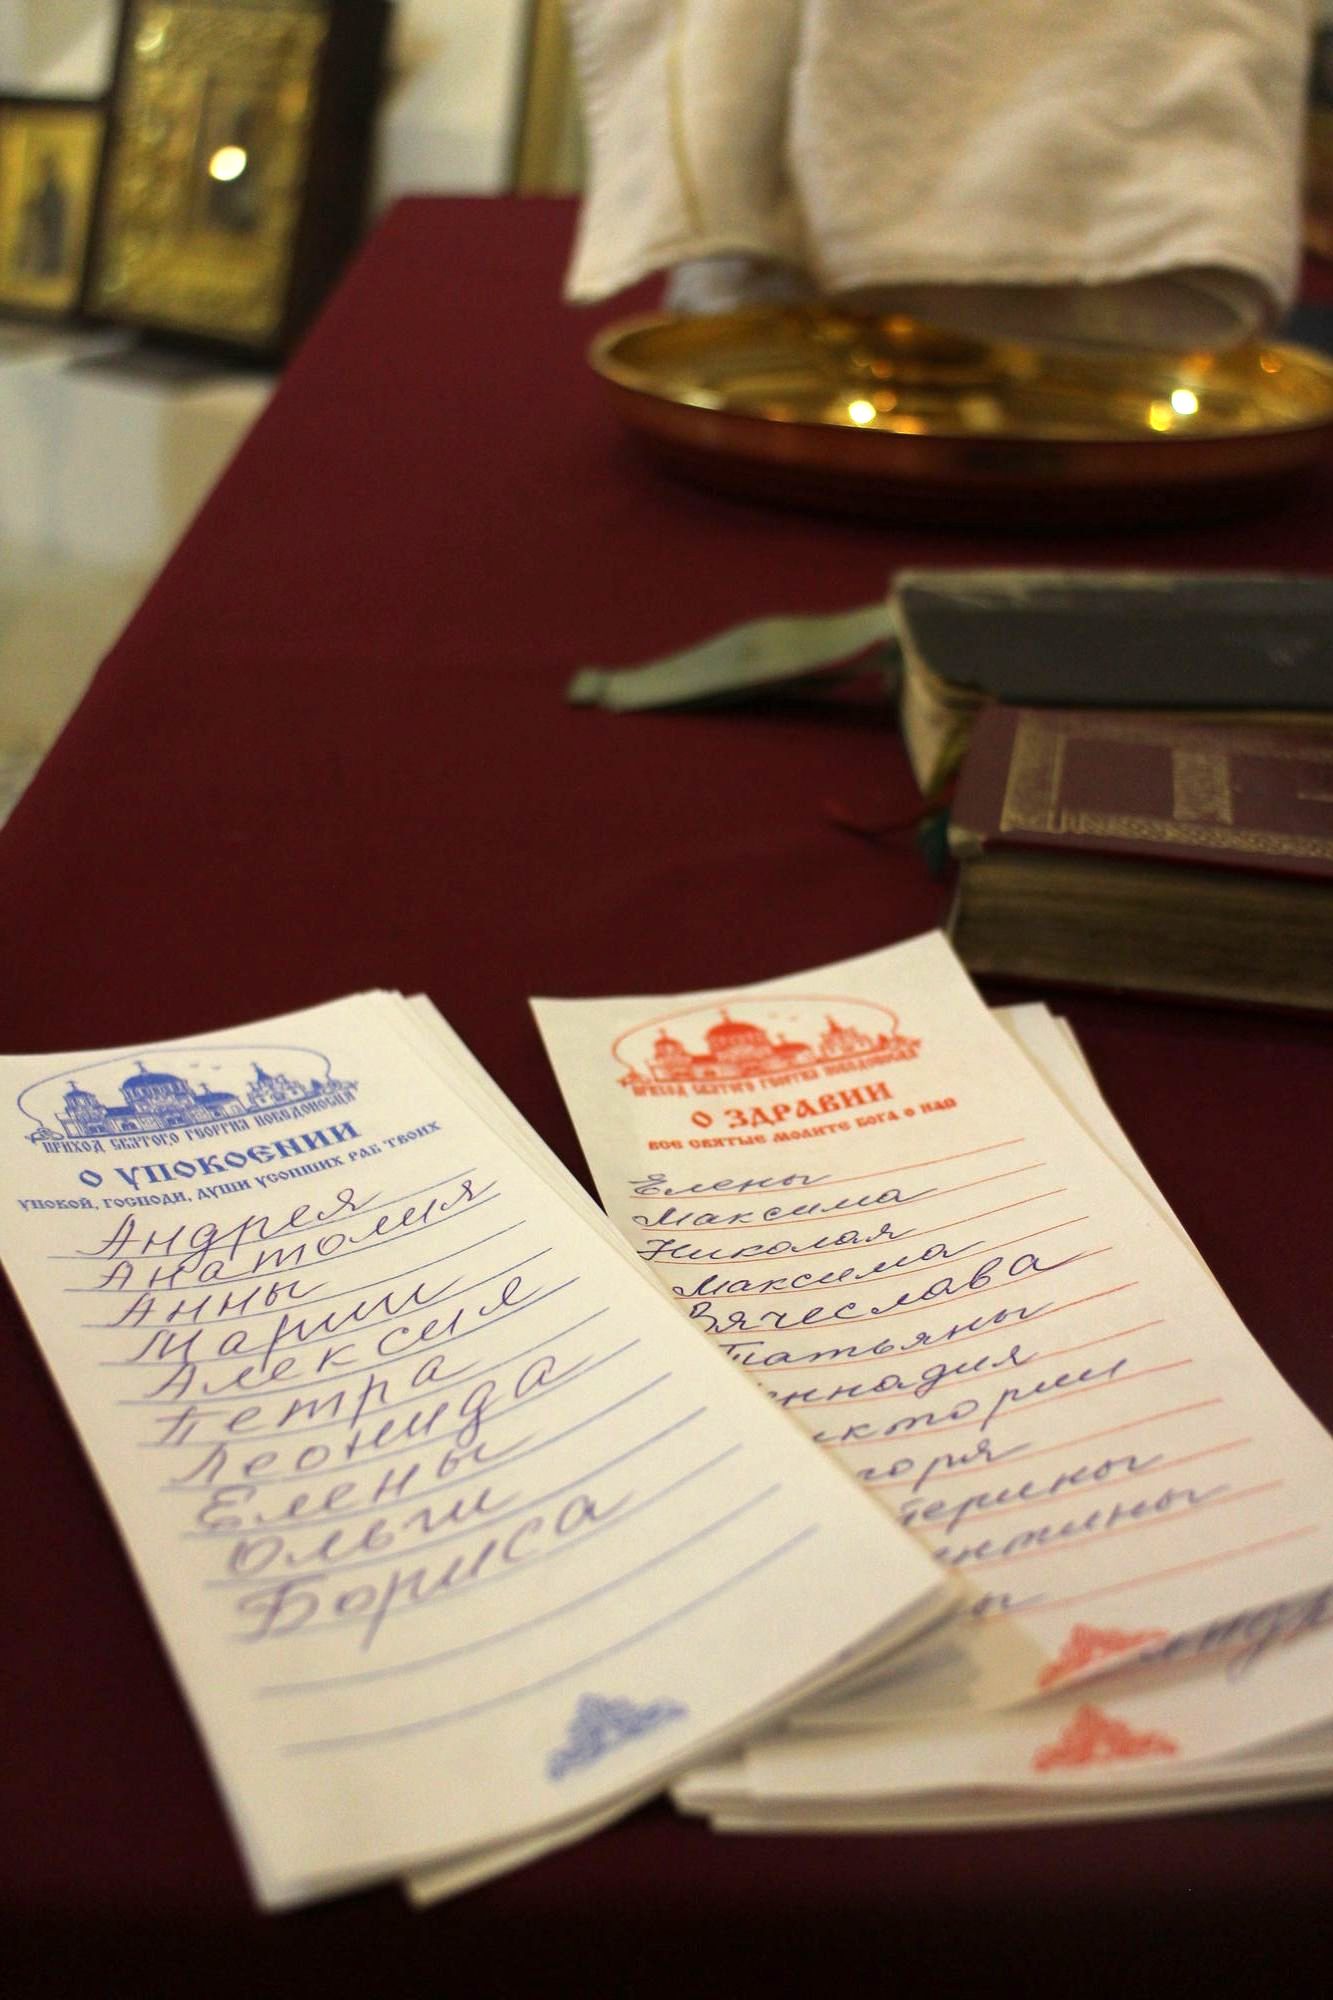 ПРИХОД СВЯТОГО ГЕОРГИЯ ПОБЕДОНОСЦА
О УПОКОЕНИИ
УПОКОЙ, ГОСПОДИ, ДУШИ УСОПШИХ РАБ ТВОИХ
Андрея
Анатолия
Анны
Марии
Алексия
Петра
Леонида
Елены
Ольги
Бориса
ПРИХОД СВЯТОГО ГЕОРГИЯ ПОБЕДОНОСЦА
О ЗДРАВИИ
ВСЕ СВЯТЫЕ МОЛИТЕ БОГА О НАС
Елены
Максима
Николая
Максима
Вячеслава
Татьяны
еннадия
иктории
горя
терины
нтины
ны